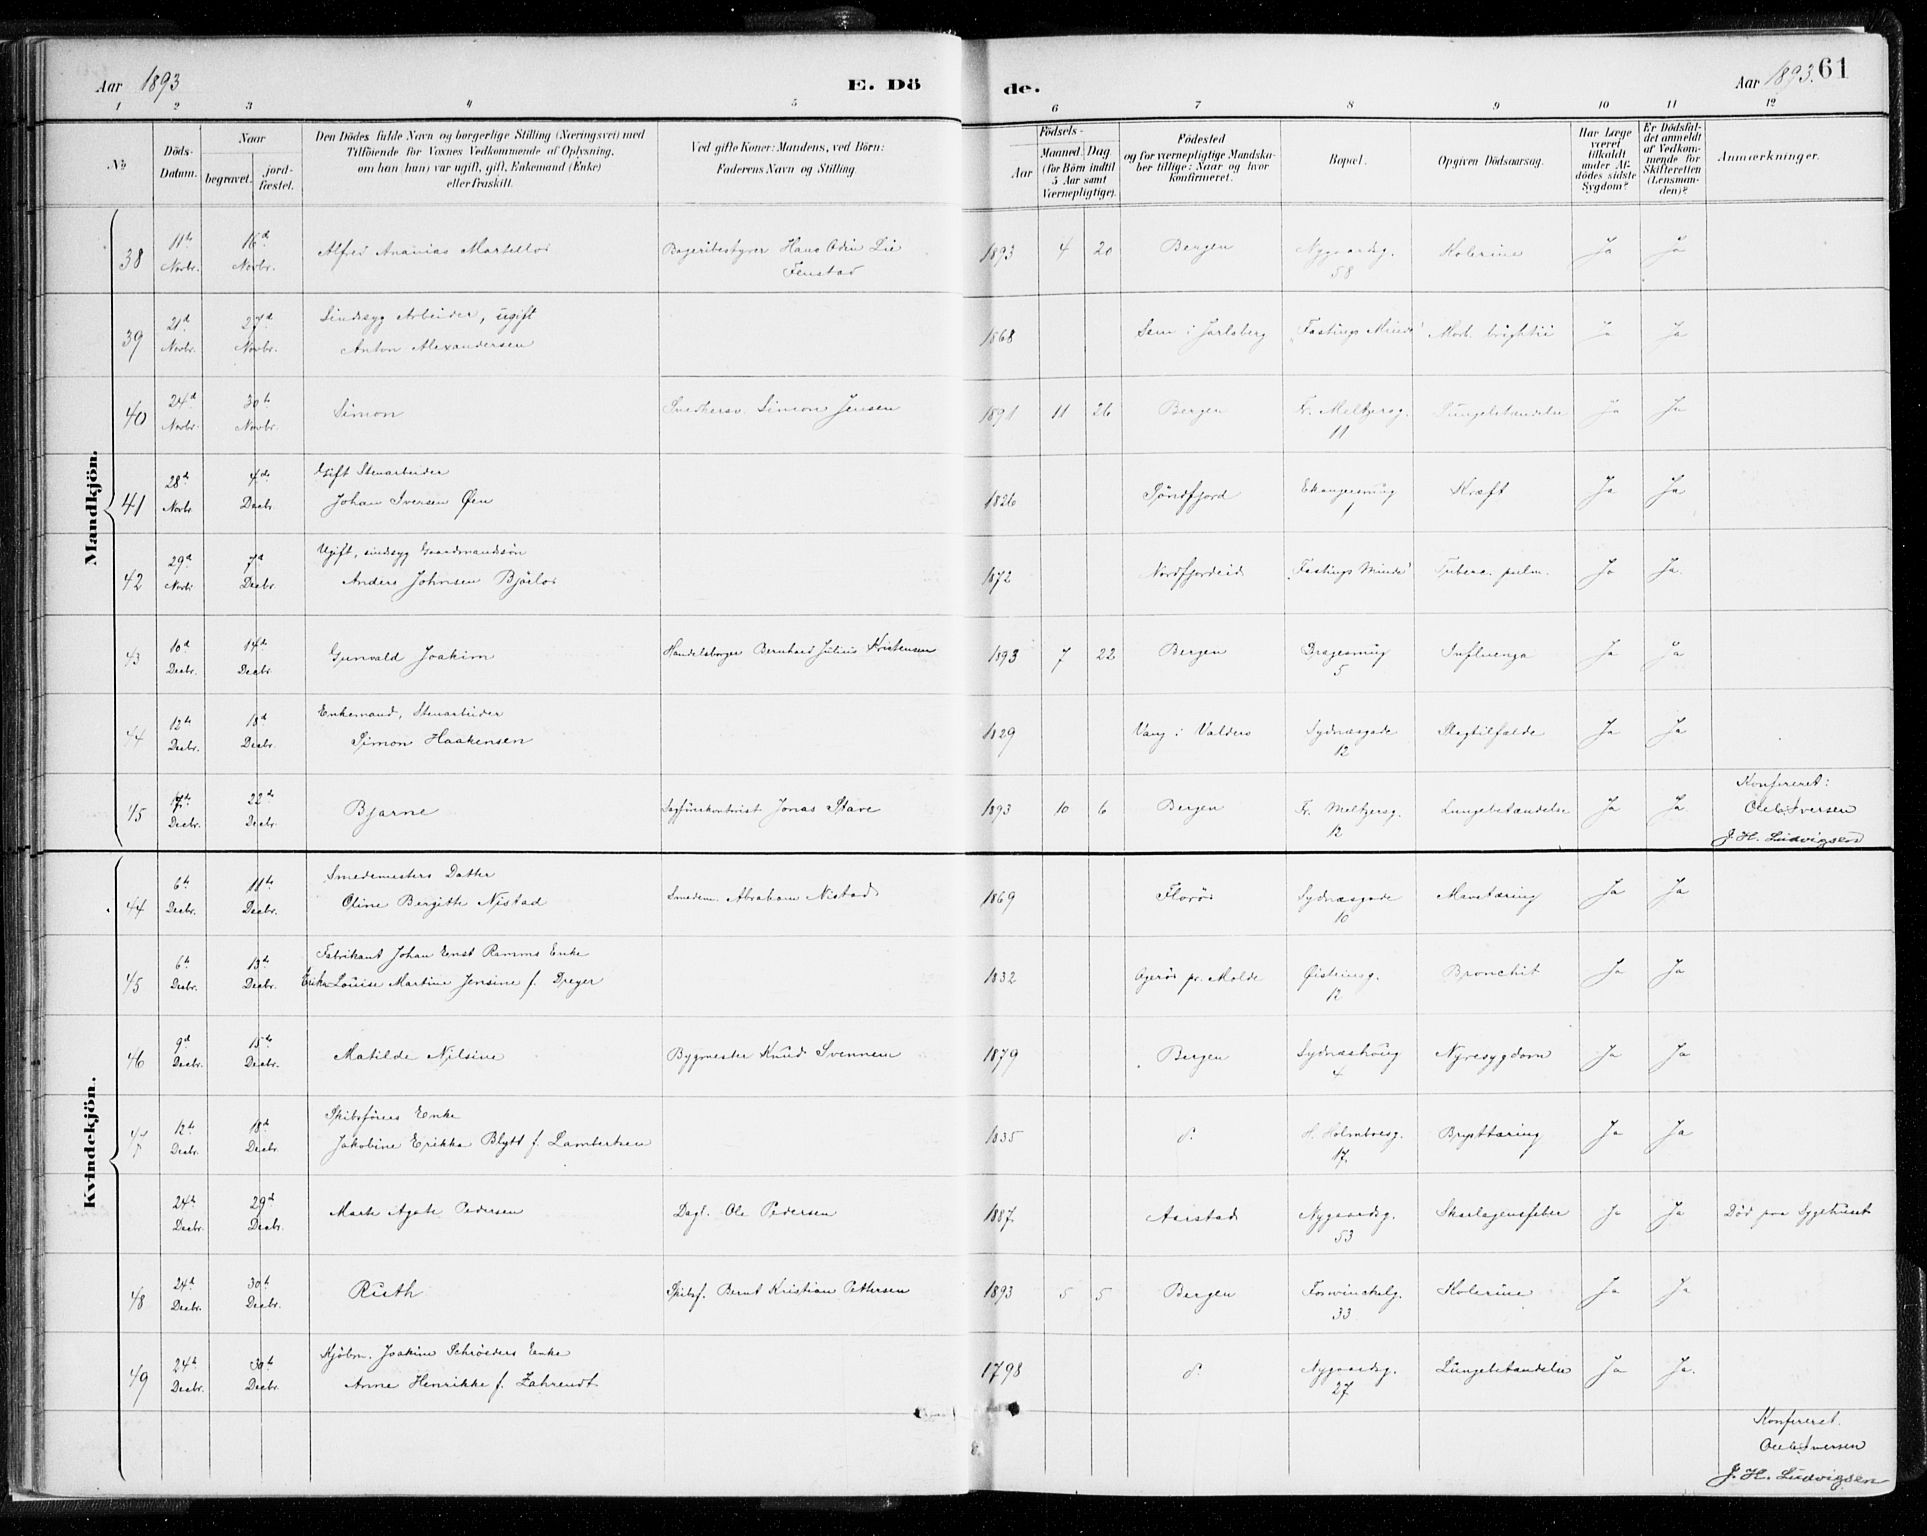 Aar 1893
E. Dö
de.
Aar 1893. 61
1 2 3 4 5 6 7 8 9 10 11 12
No
Döds-
Datum.
Naar
begravet.
jord-
fæstet.
Den Dödes fulde Navn og borgerlige Stilling (Næringsvei) med
Tilföiende for Voxnes Vedkommende af Oplysning,
om han (hun) var ugift, gift, Enkemand (Enke)
eller fraskilt.
Ved gifte Koner: Mandens, ved Börn:
Faderens Navn og Stilling
Födsels-
Aar
Maaned. Dag
(for Börn indtil
5 Aar samt
Værnepligtige).
Födested
og for værnepligtige Mandska-
ber tillige: Naar og hvor
konfirmeret.
Bopæl.
Opgiven Dödsaarsag.
Har Læge
været
tilkaldt
under Af-
dödes sidste
Sygdom?
Er Dödsfal-
det anmeldt
af Vedkom-
mende for
Skifteretten
(Lensman-
den)?
Anmærkninger.
Mandkjön.
38 11te Novbr. 16d Novbr. Alfred Ananias Martellos Bageribestyrer Hans Odin Lie Fenstad 1893 4 20 Bergen Nygaardsg. 58 Kolerine Ja Ja
39 21d Novbr. 27d Novbr. Sindssyg Arbeider, ugift
Anton Alexandersen 1868 Sem i Jarlsberg "Fastings Minde" Morb. brightii Ja Ja
40 24d Novbr. 30te Novbr. Simon Snedkersv. Simon Jensen 1891 11 26 Bergen Fr. Meltzersg. 11 Lungebetændelse Ja Ja
41 28de Novbr. 4de Decbr. Gift Stenarbeider
Johan Iversen Øen 1826 Söndfjord 1 Kræft Ja Ja
42 29d Novbr. 7d Decbr. Ugift, sindssyg Gaardmandssön
Anders Johnsen Bjørlo 1872 Nordfjordeid "Fastings Minde" Tuberc. pulm. Ja Ja.
43 10d Decbr. 14d Decbr. Gunvald Joakim Handelsborger Bernhard Julius Kristensen 1893 7 22 Bergen Dragesmug 5 Influenza Ja Ja
44 12te Decbr. 18d Decbr. Enkemand, Stenarbeider
Simon Haakensen 1829 Vang i Valders Sydnæsgade 12 Slagtilfælde Ja Ja
45 17de Decbr. 22de Decbr. Bjarne Sagförerkontorist Jonas Stave 1893 10 6 Bergen Fr. Meltzersg. 12 Lungebetændelse Ja Ja Konfereret:
Ole C. Iversen
J. H. Ludvigsen
Kvindekjön.
44 6te Decbr. 11te Decbr. Smedemesters Datter
Oline Bergitte Nistad Smedem. Abraham Nistad 1869 Florö Sydnæsgade 10 Mavetæring Ja Ja
45 6te Decbr. 13te Decbr. Fabrikant Johan Ernst Ramms Enke
Erika Louise Martine Jensine f. Dreyer 1832 Ogerö pr. Molde Øisteinsg. 12 Bronchit Ja Ja
46 9d Decbr. 15te Decbr. Matilde Nilsine Bygmester Knud Svennsen 1879 Bergen Sydnæshaug 4 Nyresygdom Ja Ja
47 12te Decbr. 18d Decbr. Skibsförers Enke
Jakobine Erikka Blytt f. Lambertsen 1835 do. H. Holmboesg. 17. Brysttæring Ja Ja
24de Decbr. 29d Decbr. Marte Agate Pedersen Dagl. Ole Pedersen 1887. Aarstad Nygaardsg. 53 Skarlagensfeber Ja Ja Död paa Sygehuset
48 24de Decbr. 30te Decbr. Ruth Skibsf. Bernt Kristian Pettersen 1893 5 5 Bergen Foswinckelg. 33 Kolerine Ja Ja
49 24de Decbr. 30te Decbr. Kjöbm. Joakim Schröeders Enke
Anne Henrikke f. Zahrendt 1798 do. Nygaardsg. 27 Lungebetændelse Ja Ja.
Konfereret.
Ole C. Iversen
J. H. Ludvigsen